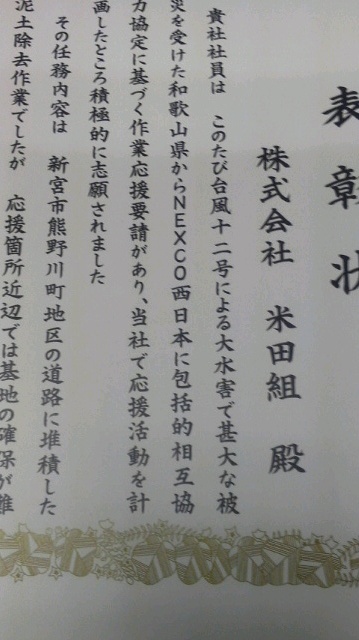 表彰状
株式会社 米田組 殿
貴社社員は このたび台風十二号による大水害で甚大な被
災を受けた和歌山県からNEXCO西日本に包括的相互協
力協定に基づく作業応援要請があり、当社で応援活動を計
画したところ積極的に志願されました
その任務内容は 新宮市熊野川町地区の道路に堆積した
泥土除去作業でしたが 応援箇所近辺では基地の確保が難